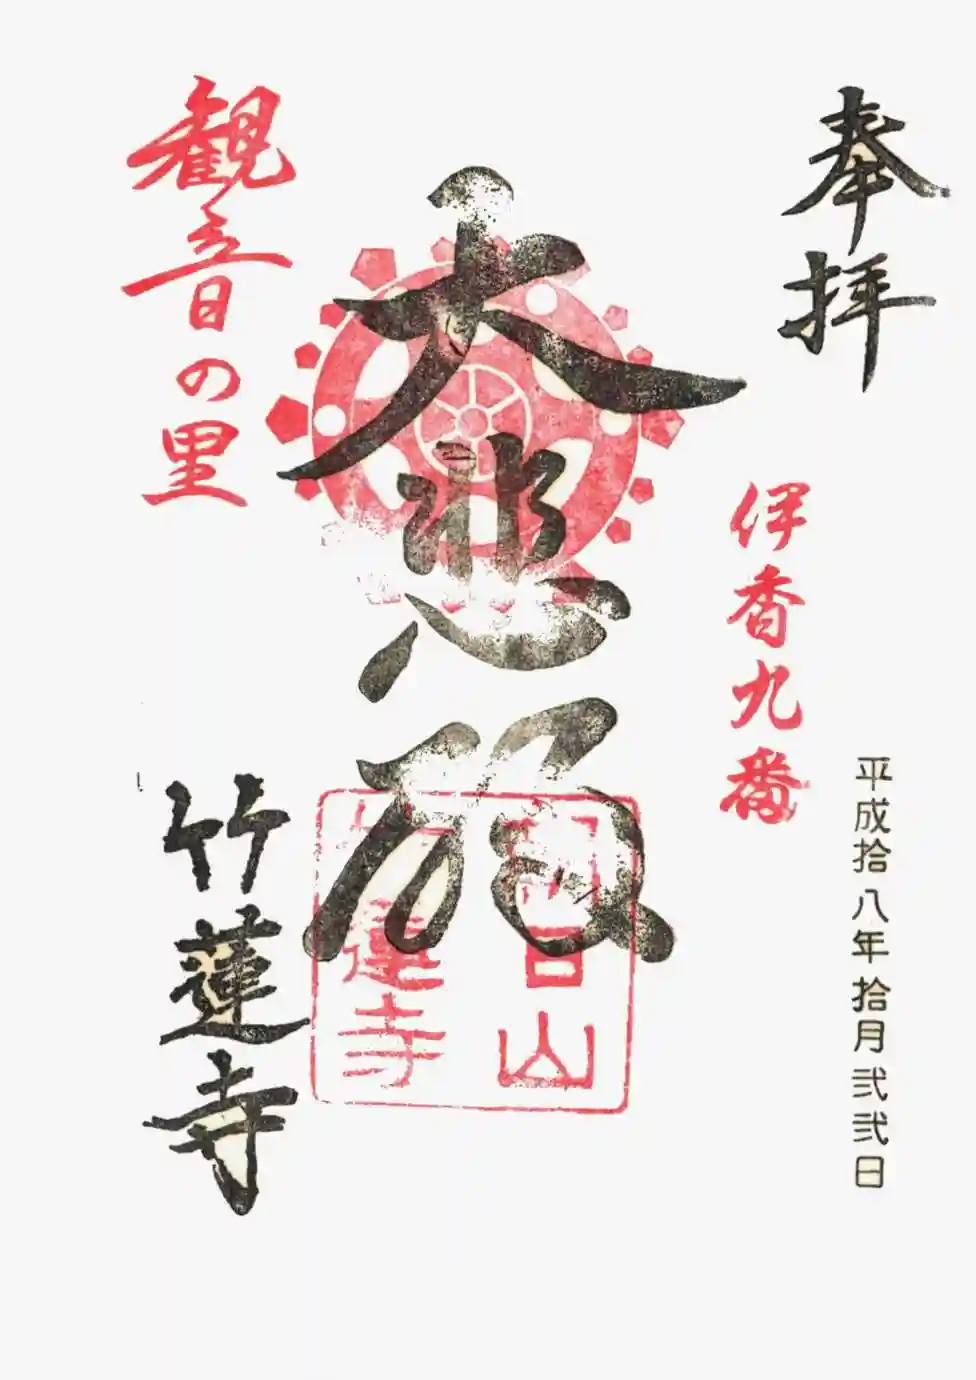 奉拝
平成拾八年拾月弐弐日
伊香九番
大悲殿
観音の里
竹蓮寺
日山
蓮寺